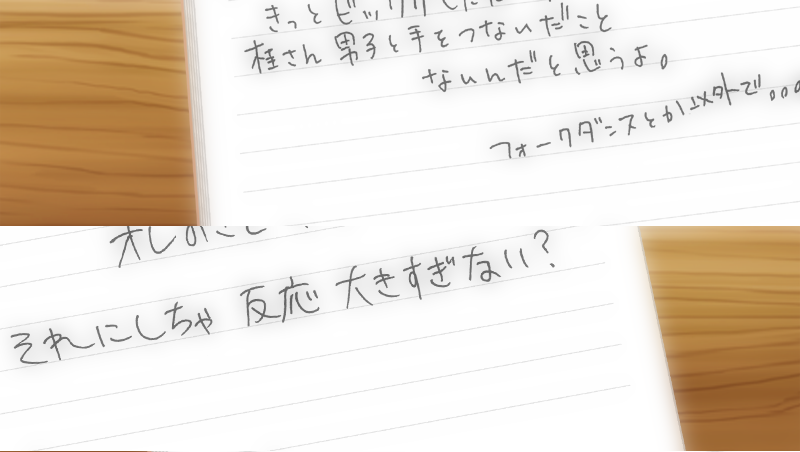 きっとビックリしただ
桂さん 男子と手をつないだこと
ないんだと思うよ。
フォークダンスとか以外で。。。
オレのさし
それにしちゃ 反応 大きすぎない?